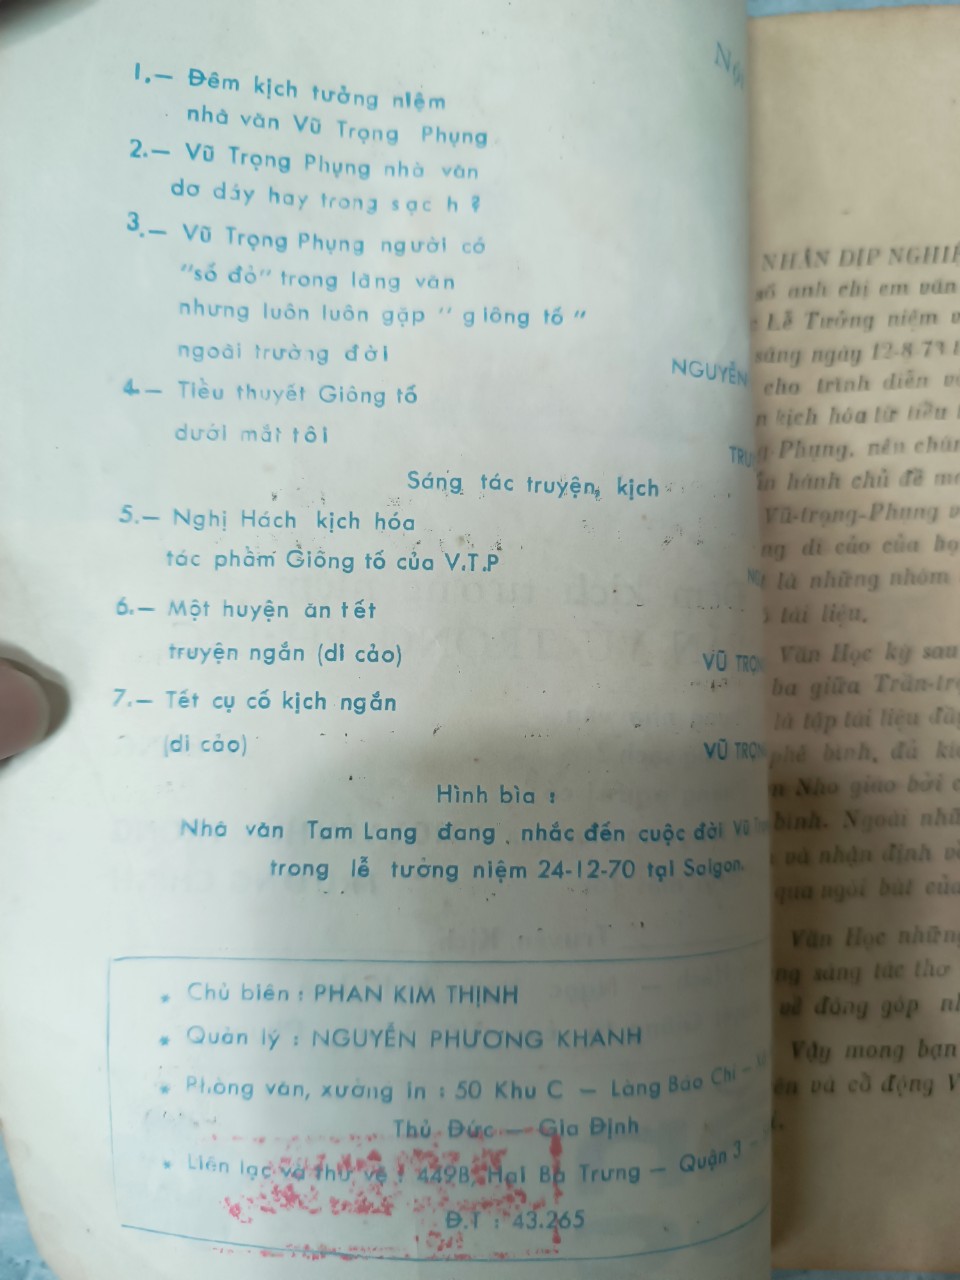 1.— Đêm kịch tưởng niệm
nhà văn Vũ Trọng Phụng
2.— Vũ Trọng Phụng nhà văn
dơ dáy hay trong sạch ?
3.— Vũ Trọng Phụng người có
"số đỏ" trong làng văn
nhưng luôn luôn gặp " giông tố "
ngoài trường đời
NGUYỄN
4.— Tiểu thuyết Giông tố
dưới mắt tôi
Sáng tác truyện, kịch
5.— Nghị Hách kịch hóa
tác phẩm Giông tố của V.T.P
6.— Một huyện ăn tết
truyện ngắn (di cảo)
VŨ TRỌNG
7.— Tết cụ cố kịch ngắn
(di cảo)
VŨ TRỌNG
Hình bìa :
Nhà văn Tam Lang đang nhắc đến cuộc đời Vũ
trong lễ tưởng niệm 24-12-70 tại Saigon.
* Chủ biên : PHAN KIM THỊNH
* Quản lý : NGUYỄN PHƯƠNG KHANH
* Phòng văn, xưởng in : 50 Khu C — Làng Báo Chí —
Thủ Đức — Gia Định
* Liên lạc và thư về : 449B, Hai Bà Trưng — Quận 3 —
Đ.T : 43.265
NHÂN DỊP
số anh chị em văn
Lễ Tưởng niệm
sáng ngày 12-8-73
cho trình diễn
kịch hóa từ tiểu
Phụng, nên chúng
hành chủ đề
Vũ-trọng-Phụng
di cảo của
là những nhóm
tài liệu.
Văn Học kỳ sau
ba giữa
là tập tài liệu
phê bình, đủ
Nho giáo bởi
bình. Ngoài
và nhận định
qua ngòi bút của
Văn Học những
sáng tác thơ
về đóng góp
Vậy mong bạn
và cổ động